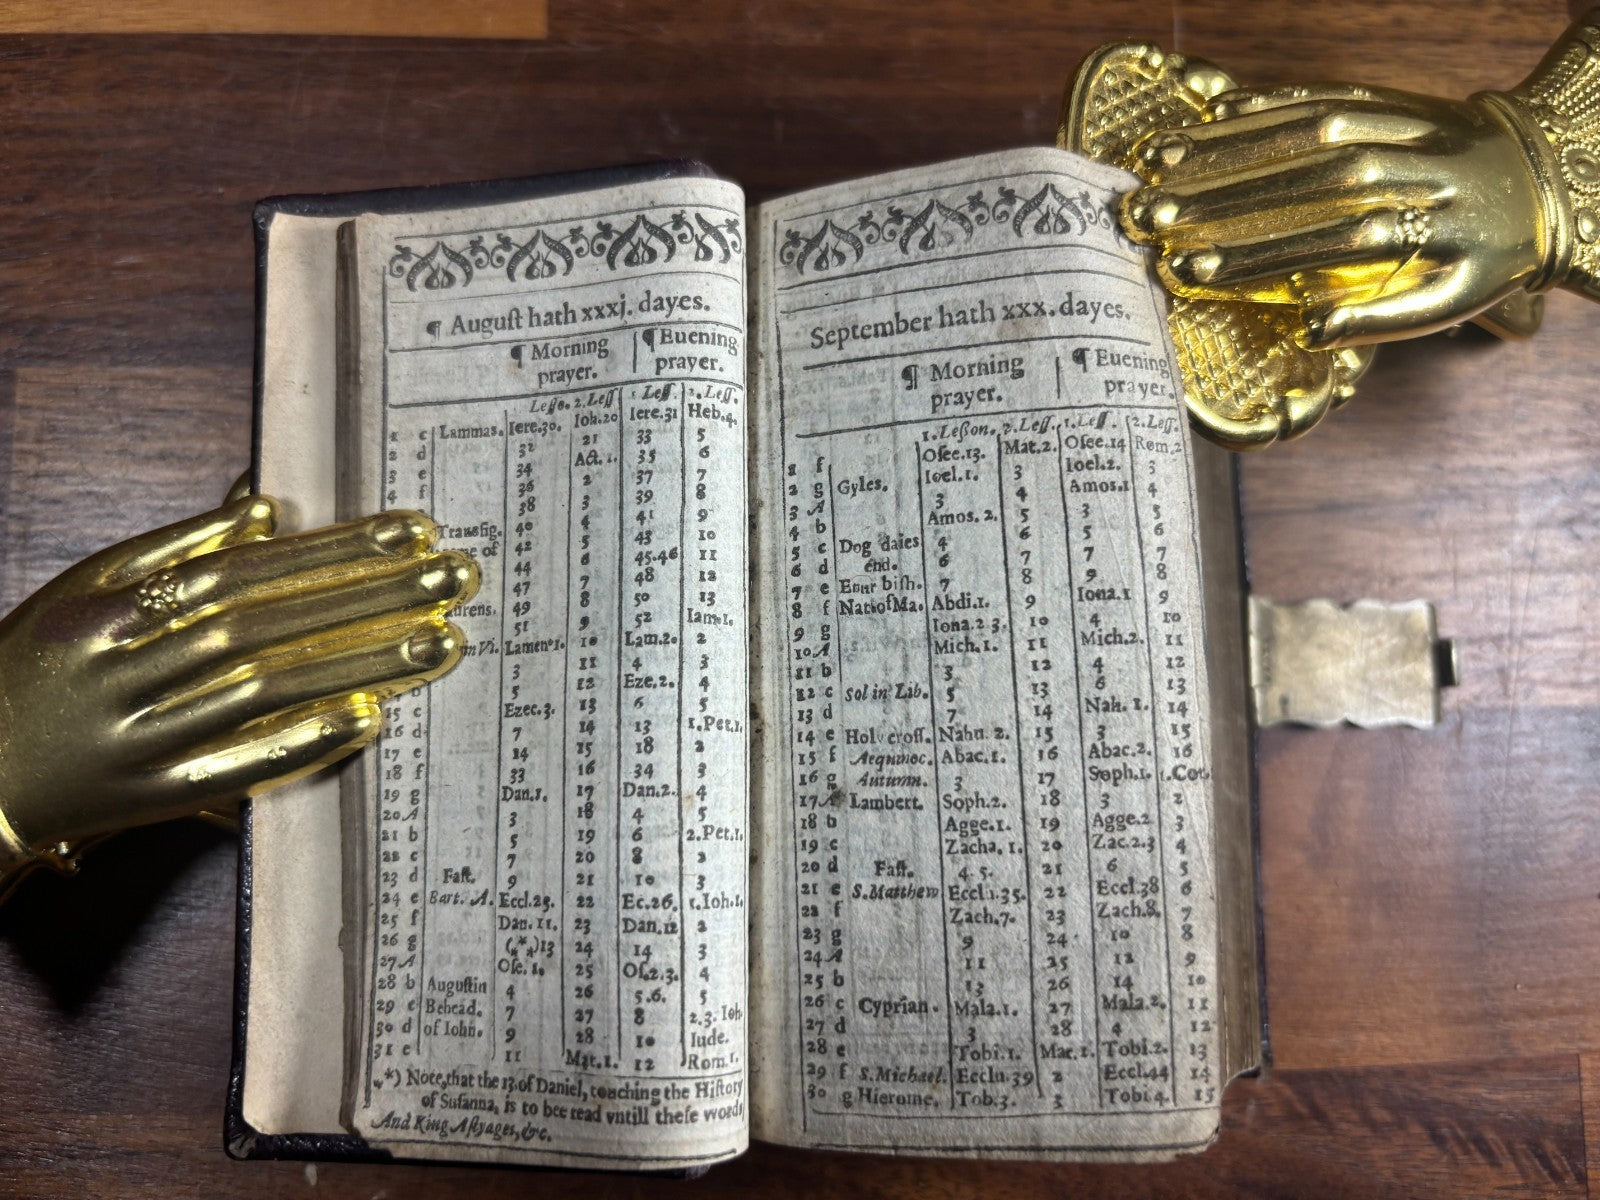 ¶ Auguſt hath xxxj. dayes.
¶ Morning ¶ Euening
prayer. prayer.
Leſſo. 2.Leſſ 1 Leſſ. 2.Leſſ.
1 c Lammas. Iere.30. Ioh.20 Iere.31 Heb.4.
2 d 32 21 33 5
3 e 34 Act.1. 35 6
4 f 36 2 37 7
38 3 39 8
Transfig. 40 4 41 9
of 42 5 43 10
44 6 45.46 11
47 7 48 12
49 8 50 13
51 9 52 Iam.1.
Vi. Lamen.1. 10 Lam.2. 2
3 11 4 3
b 5 12 Eze.2. 4
15 c Ezec.3. 13 6 5
16 d 7 14 13 1.Pet.1.
17 e 14 15 18 2
18 f 33 16 34 3
19 g Dan.1. 17 Dan.2. 4
20 A 3 18 4 5
21 b 5 19 6 2.Pet.1.
22 c 7 20 8 2
23 d Faſt. 9 21 10 3
24 e Bart. A. Eccl.25. 22 Ec.26. 1.Ioh.1.
25 f Dan.11. 23 Dan.12 2
26 g (**)13 24 14 3
27 A Oſe.1. 25 Oſ.2.3. 4
28 b Auguſtin 4 26 5.6. 5
29 c Behead. 7 27 8 2.3.Ioh.
30 d of Iohn. 9 28 10 Iude.
31 e 11 Mat.1. 12 Rom.1.
**) Note, that the 13 of Daniel, touching the Hiſtory
of Suſanna, is to bee read vntill theſe words
And King Aſtyages, &c.
September hath xxx. dayes.
¶ Morning ¶ Euening
prayer. prayer.
1.Leßon. 2.Leſſ. 1.Leſſ 2.Leſſ.
1 f Oſee.13. Mat.2. Oſee.14 Rom.2
2 g Gyles. Ioel.1. 3 Ioel.2. 3
3 A 3 4 Amos.1 4
4 b Amos.2. 5 3 5
5 c Dog daies 4 6 5 6
6 d end. 6 7 7 7
7 e Enur biſh. 7 8 9 8
8 f Nat.of Ma. Abdi.1. 9 Iona.1 9
9 g Iona.2 3. 10 4 10
10 A Mich.1. 11 Mich.2. 11
11 b 3 12 4 12
12 c Sol in Lib. 5 13 6 13
13 d 7 14 Nah.1. 14
14 e Holy croſſ. Nahu.2. 15 3 15
15 f Aequinoc. Abac.1. 16 Abac.2. 16
16 g Autumn. 3 17 Soph.1. 1.Cor.
17 A Lambert. Soph.2. 18 3 2
18 b Agge.1. 19 Agge.2 3
19 c Zacha.1. 20 Zac.2.3 4
20 d Faſt. 4.5. 21 6 5
21 e S.Matthew Ecclu.35. 22 Eccl.38 6
22 f Zach.7. 23 Zach.8. 7
23 g 9 24 10 8
24 A 11 25 12 9
25 b 13 26 14 10
26 c Cyprian. Mala.1. 27 Mala.2. 11
27 d 3 28 4 12
28 e Tobi.1. Mar.1. Tobi.2. 13
29 f S.Michael. Ecclu.39 2 Eccl.44 14
30 g Hierome. Tob.3. 3 Tobi 4. 15